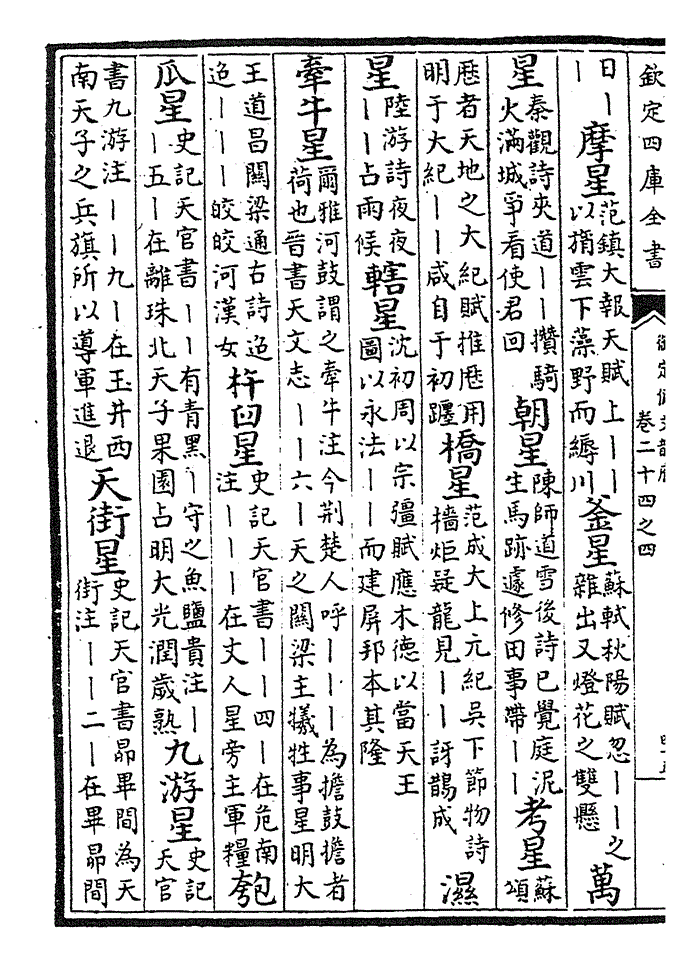 欽定四庫全書
卷二十四之四
日丨
丨
摩星
范鎮大報天賦上丨丨
以揹雲下藻野而縟川
釜星
蘇軾秋陽賦忽丨丨之
雜出又燈花之雙懸
萬
星
秦觀詩夾道丨丨攢騎
火滿城爭看使君回
朝星
陳師道雪後詩已覺庭泥
生馬跡遽修田事帶丨丨
考星
蘇
頌
厯者天地之大紀賦推厯用
明于大紀丨丨咸自于初躔
橋星
范成大上元紀吳下節物詩
檣炬疑龍見丨丨訝鵲成
濕
星
陸游詩夜夜
丨丨占雨候
轄星
沈初周以宗彊賦應木德以當天王
圖以永法丨丨而建屏邦本其隆
牽牛星
爾雅河鼓謂之牽牛注今荆楚人呼丨丨丨為擔鼓擔者
荷也晉書天文志丨丨六丨天之關梁主犧牲事星明大
王道昌關梁通古詩迢
迢丨丨丨皎皎河漢女
杵臼星
史記天官書丨丨四丨在危南
注丨丨丨在丈人星旁主軍糧
匏
瓜星
史記天官書丨丨有青黑丨守之魚鹽貴注丨
丨五丨在離珠北天子果園占明大光潤歲熟
九游星
史記
天官
書九游注丨丨九丨在玉井西
南天子之兵旗所以導軍進退
天街星
史記天官書昴畢間為天
街注丨丨二丨在畢昴間